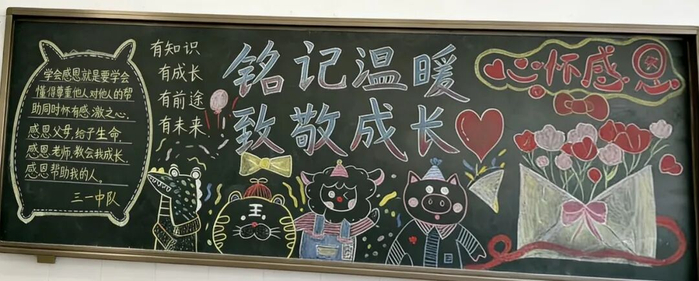 学会感恩就是要学会
懂得尊重他人对他人的帮
助同时怀有感激之心.
感恩父母,给予生命.
感恩老师,教会我成长.
感恩帮助我的人.
三一中队
有知识
有成长
有前途
有未来!
铭记温暖
致敬成长
心怀感恩
王